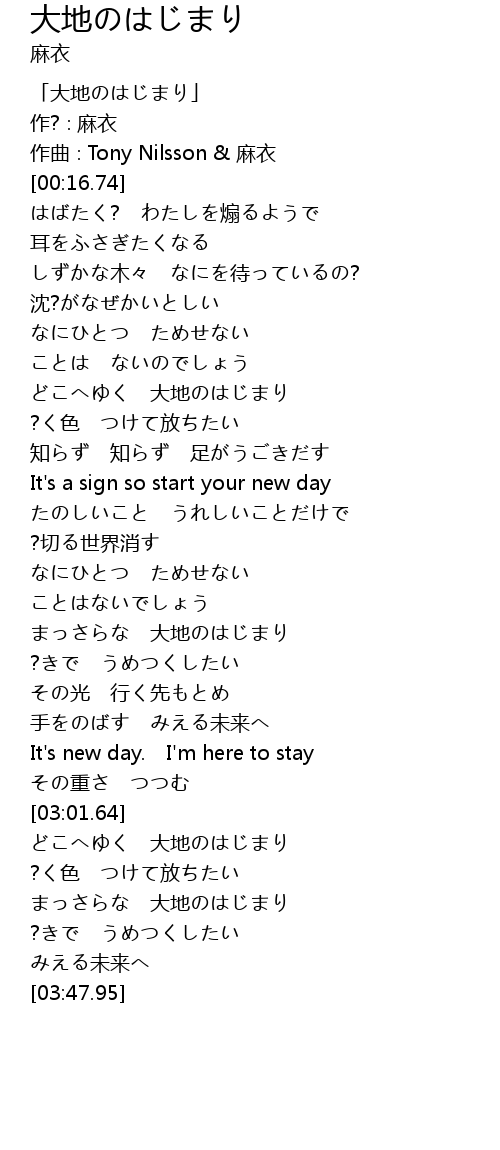 大地のはじまり
麻衣
「大地のはじまり」
作? : 麻衣
作曲 : Tony Nilsson & 麻衣
[00:16.74]
はばたく?　わたしを煽るようで
耳をふさぎたくなる
しずかな木々　なにを待っているの?
沈?がなぜかいとしい
なにひとつ　ためせない
ことは　ないのでしょう
どこへゆく　大地のはじまり
?く色　つけて放ちたい
知らず　知らず　足がうごきだす
It's a sign so start your new day
たのしいこと　うれしいことだけで
?切る世界消す
なにひとつ　ためせない
ことはないでしょう
まっさらな　大地のはじまり
?きで　うめつくしたい
その光　行く先もとめ
手をのばす　みえる未来へ
It's new day.　I'm here to stay
その重さ　つつむ
[03:01.64]
どこへゆく　大地のはじまり
?く色　つけて放ちたい
まっさらな　大地のはじまり
?きで　うめつくしたい
みえる未来へ
[03:47.95]